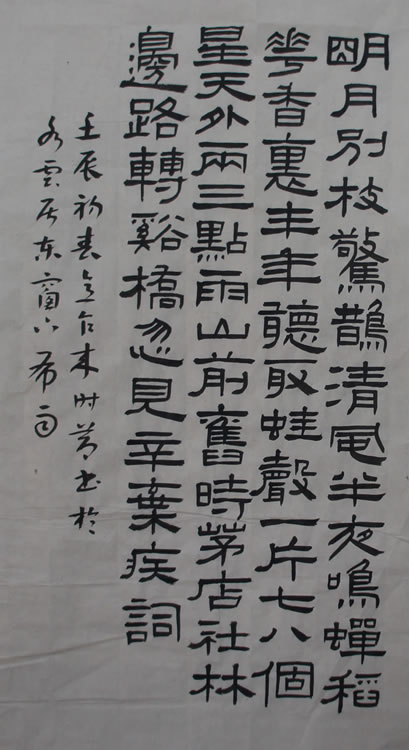 明月別枝驚鵲清風半夜鳴蟬稻
華香裏丰年聽取蛙聲一片七八個
星天外兩三點雨山前舊時茅店社林
邊路轉谿橋忽見辛棄疾詞
壬辰初春书於
水雲居东窗下希